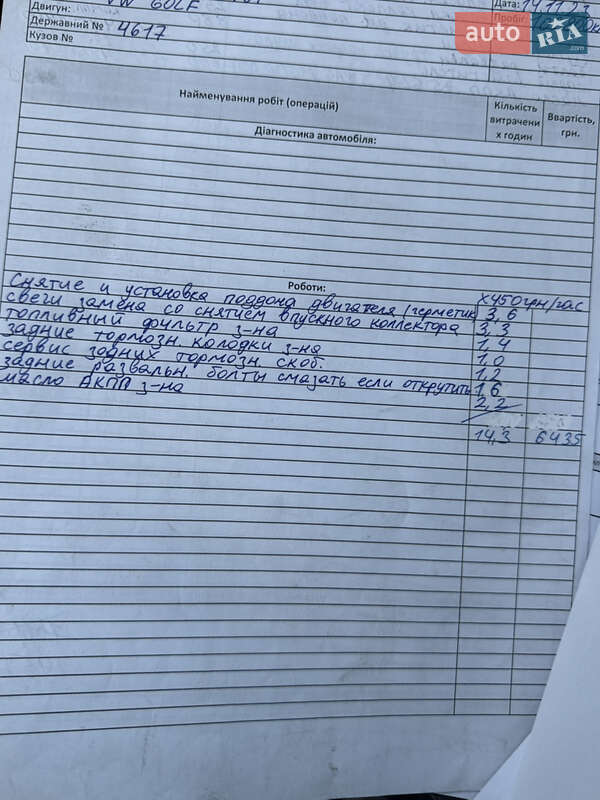 VW GOLF
Двигун:
Державний № 4617
Кузов №
Дата: 14.11.23
Пробіг
auto RIA .com
Найменування робіт (операцій)
Кількість витрачених годин
Вартість, грн.
Діагностика автомобіля:
Роботи:
х450грн/час
Снятие и установка поддона двигателя (герметик) 3,6
свечи замена со снятием впускного коллектора 3,3
топливный фильтр з-на 1,4
задние тормозн. колодки з-на 1,0
сервис задних тормозн. скоб. 1,2
задние развальн. болты смазать если открутить 1,6
масло АКПП з-на 2,2
14,3 6435